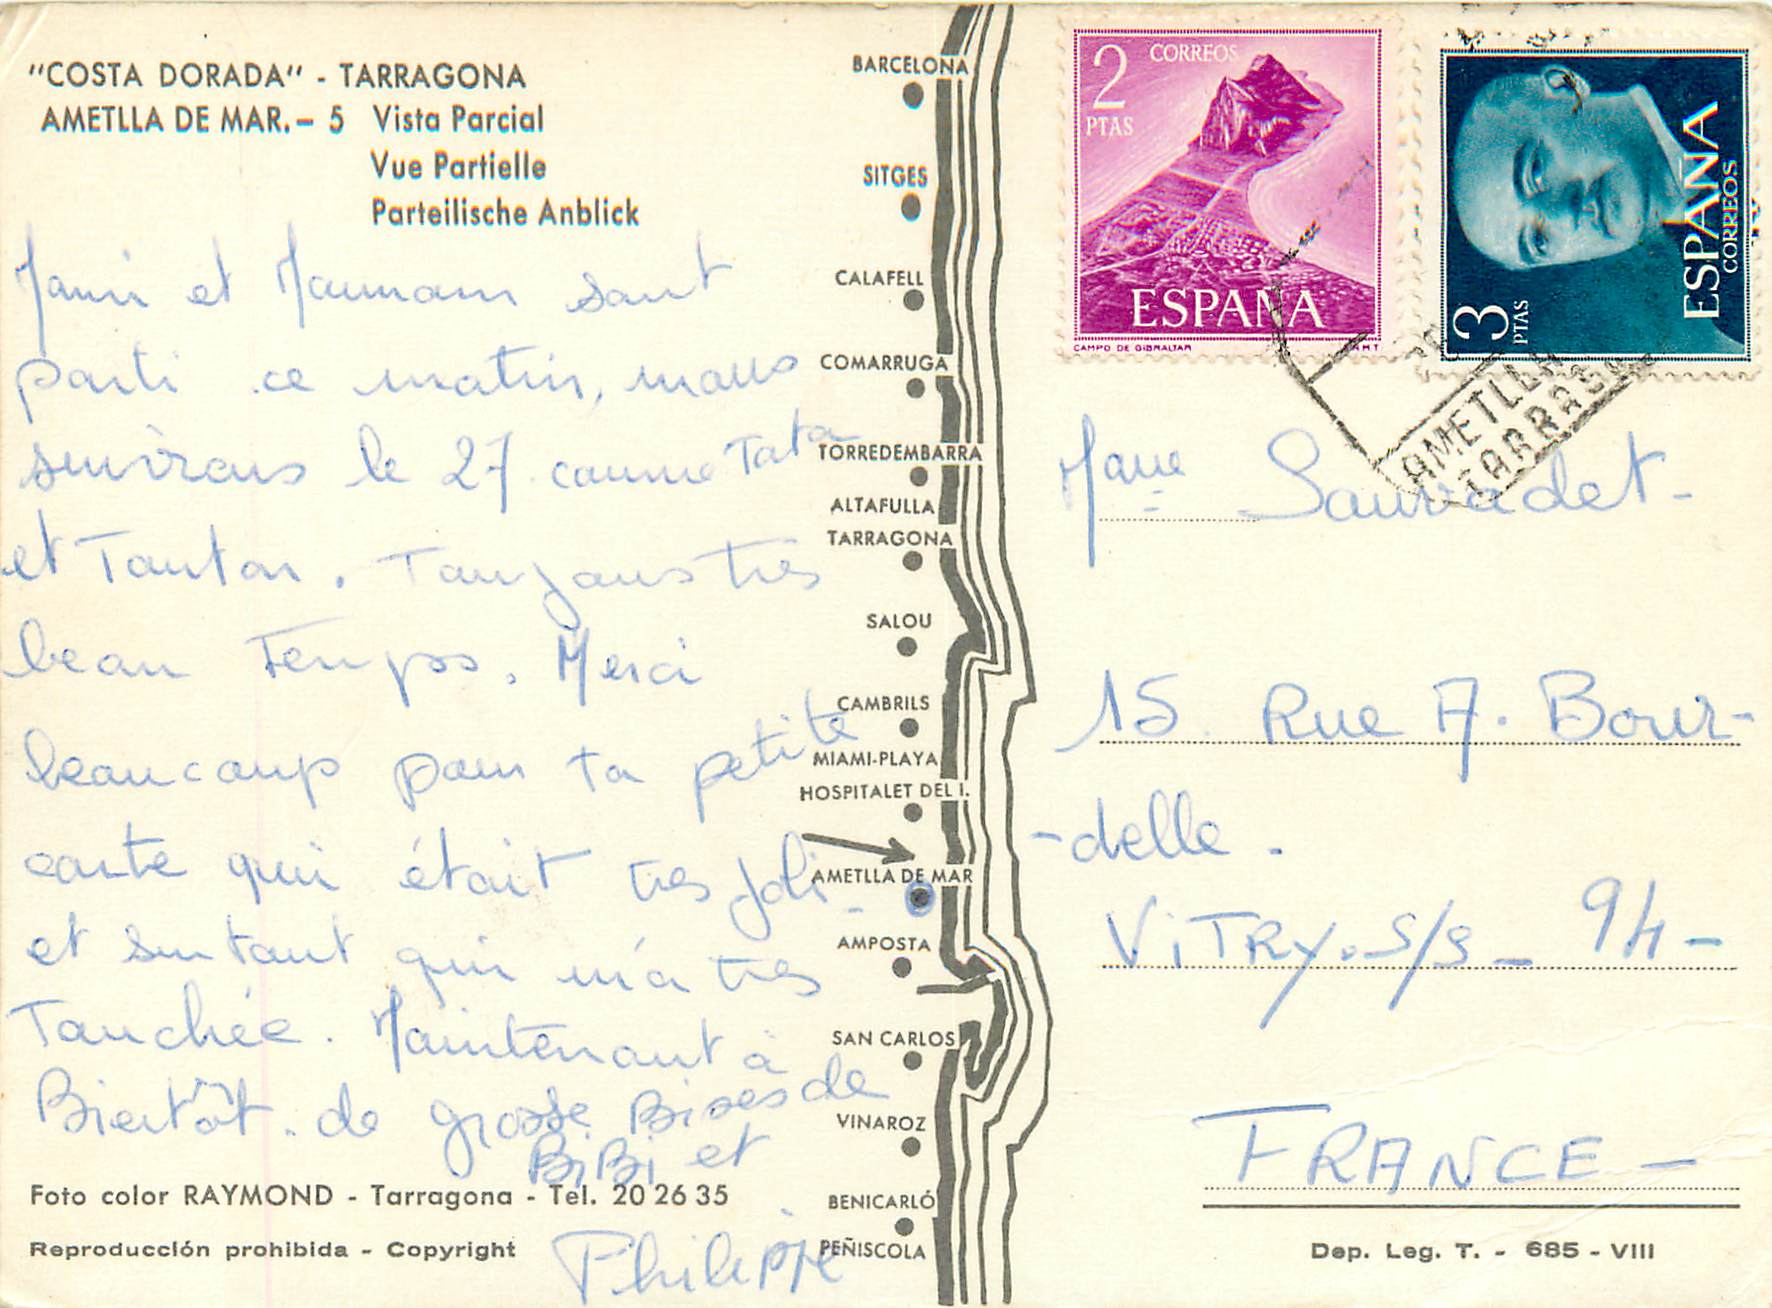 "COSTA DORADA" - TARRAGONA
AMETLLA DE MAR.- 5 Vista Parcial
Vue Partielle
Parteilische Anblick
et Maman sont
parti ce matin, nous
suivrons le 27. comme Tata
et Tonton. Toujours tres
beau Temps. Merci
beaucoup pour ta petite
carte qui était tres joli-
et surtout qui m'a tres
Touchée. Maintenant à
Bientôt. de grosse Bises de
BiBi et
Philippe
Foto color RAYMOND - Tarragona - Tel. 20 26 35
Reproducción prohibida - Copyright
BARCELONA
SITGES
CALAFELL
COMARRUGA
TORREDEMBARRA
ALTAFULLA
TARRAGONA
SALOU
CAMBRILS
MIAMI-PLAYA
HOSPITALET DEL I.
AMETLLA DE MAR
AMPOSTA
SAN CARLOS
VINAROZ
BENICARLÓ
PEÑISCOLA
2 CORREOS
PTAS
ESPAÑA
CAMPO DE GIBRALTAR
3 PTAS
ESPAÑA
CORREOS
AMETLLA
TARRAGONA
Mme Sauvadet-
15 Rue A. Bour-
-delle.
ViTRY. S/S - 94 -
FRANCE -
Dep. Leg. T. - 685 - VIII